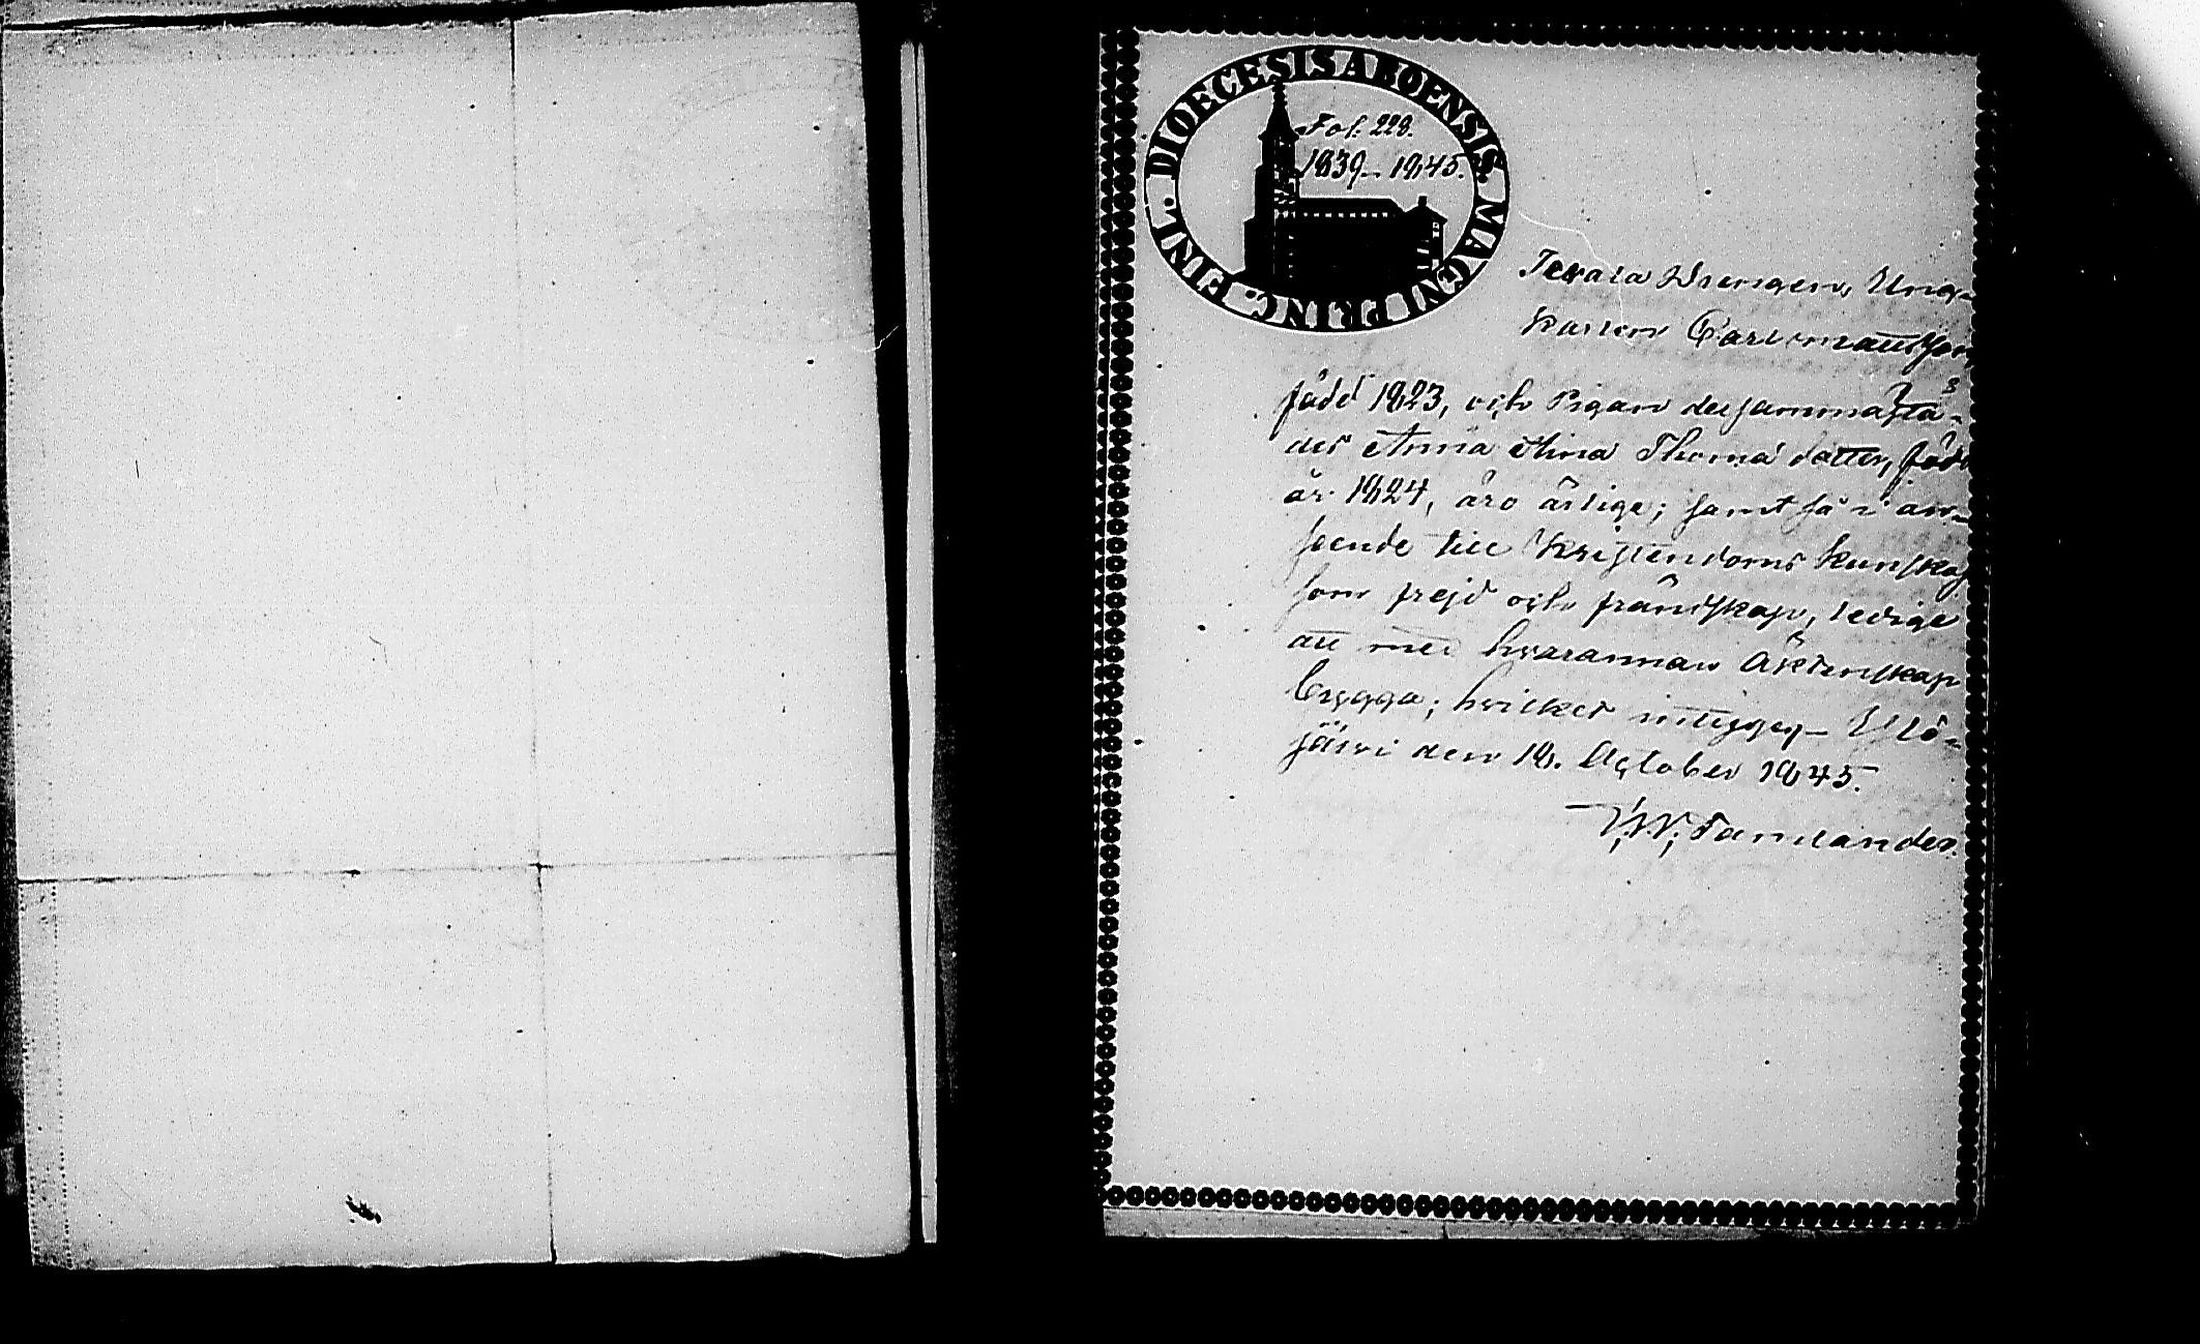 DIOECESIS ABOENSIS. MAGNI PRINC. FINL.
Fol. 228.
1839–1845.
Drengen, Ung-
karlen Carl Mattsson,
född 1823, och Pigan dersammastä-
des Anna Stina Thomä dotter, född
år 1824, äro ärlige; samt så i an-
seende till Kristendoms kunskap
som frejd och frändskap, ledige
att med hvarannan Äktenskap
bygga; hvilket intygges – Ylö-
järvi den 18. October 1845.
Tamlander.